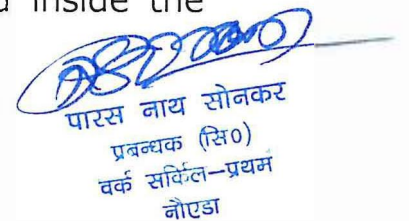 inside the
पारस नाथ सोनकर
प्रबन्धक (सि0)
वर्क सर्किल–प्रथम
नौएडा